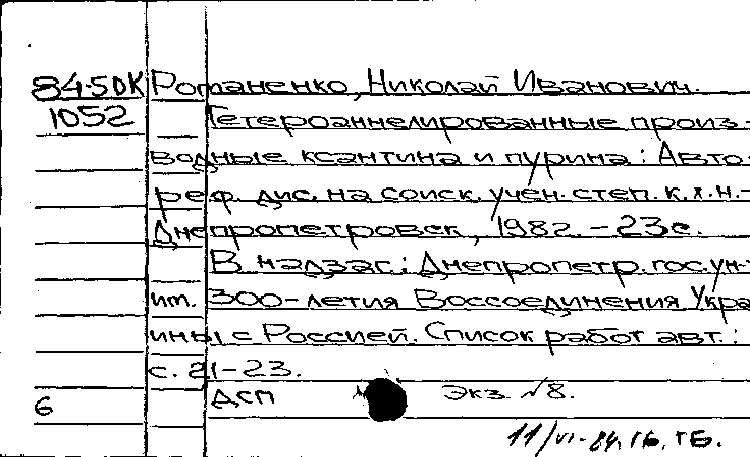 84-5DK Романенко, Николай Иванович.
1052 Гетероаннелированные произ-
водные ксантина и пурина: Авто-
реф. дис. на соиск. учен. степ. к.х.н.-
Днепропетровск, 1982. - 23 с.
В надзаг.: Днепропетр. гос. ун-т
им. 300-летия Воссоединения Укра
ины с Россией. Список работ авт.:
с. 21-23.
6 ДСП Экз. №8.
11/VI-84. ГБ.